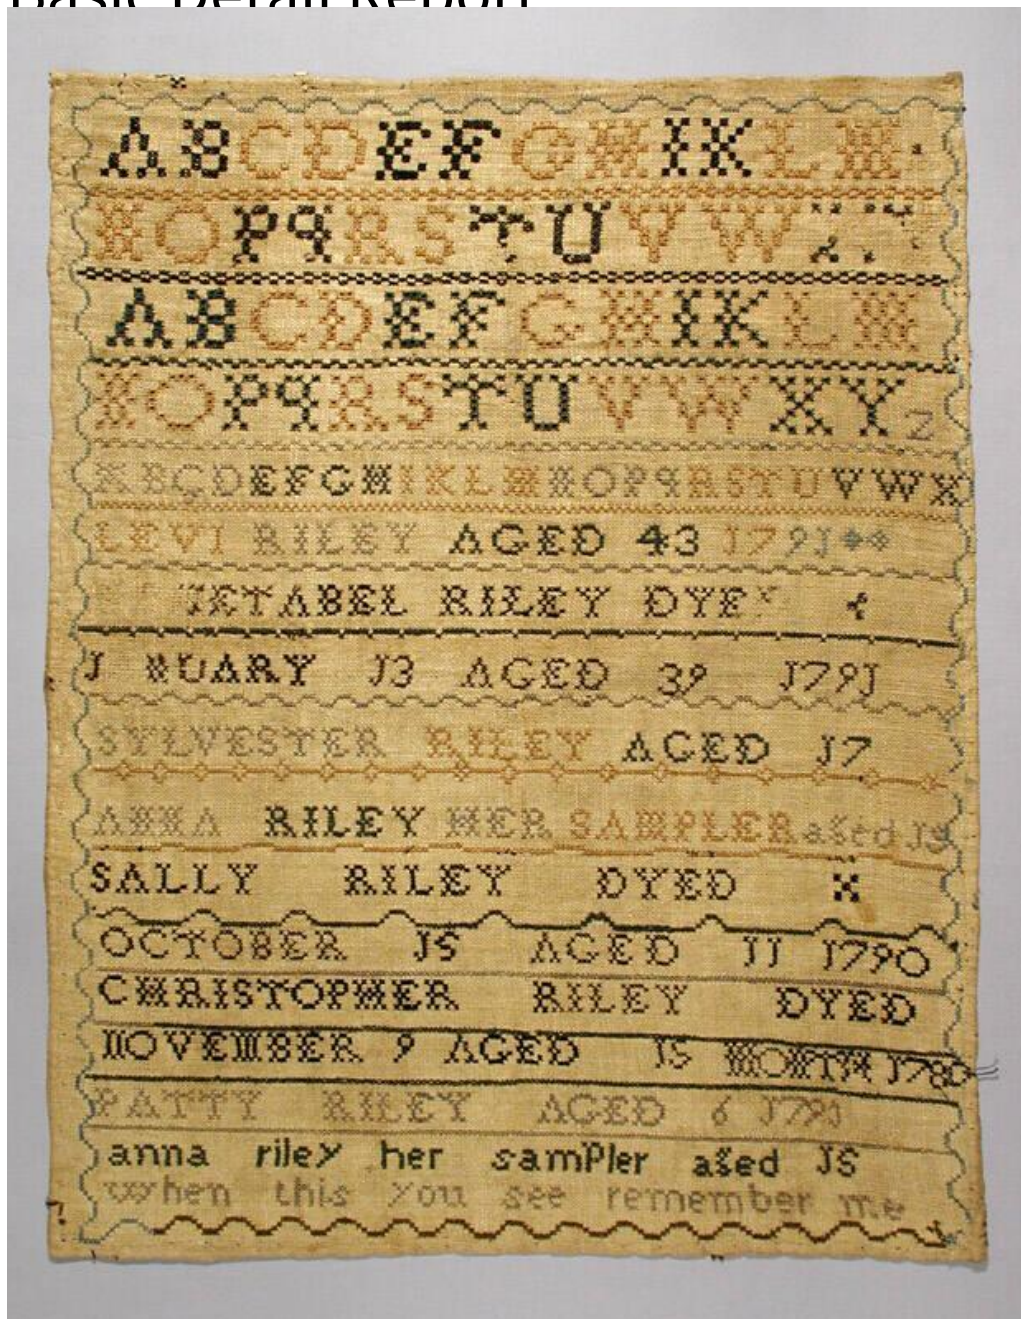 Basic Detail Report
A B C D E F G H I K L M
N O P Q R S T U V W
A B C D E F G H I K L M
N O P Q R S T U V W X Y Z
A B C D E F G H I K L M N O P Q R S T U V W X
LEVI RILEY AGED 43 J79J
RILEY DYE
J NUARY J3 AGED 39 J79J
SYLVESTER RILEY AGED J7
ANNA RILEY HER SAMPLER aged J5
SALLY RILEY DYED
OCTOBER J5 AGED JJ J790
CHRISTOPHER RILEY DYED
NOVEMBER 9 AGED J5 MONTH J780
PATTY RILEY AGED 6 J79J
anna riley her samPler aged J5
when this you see remember me